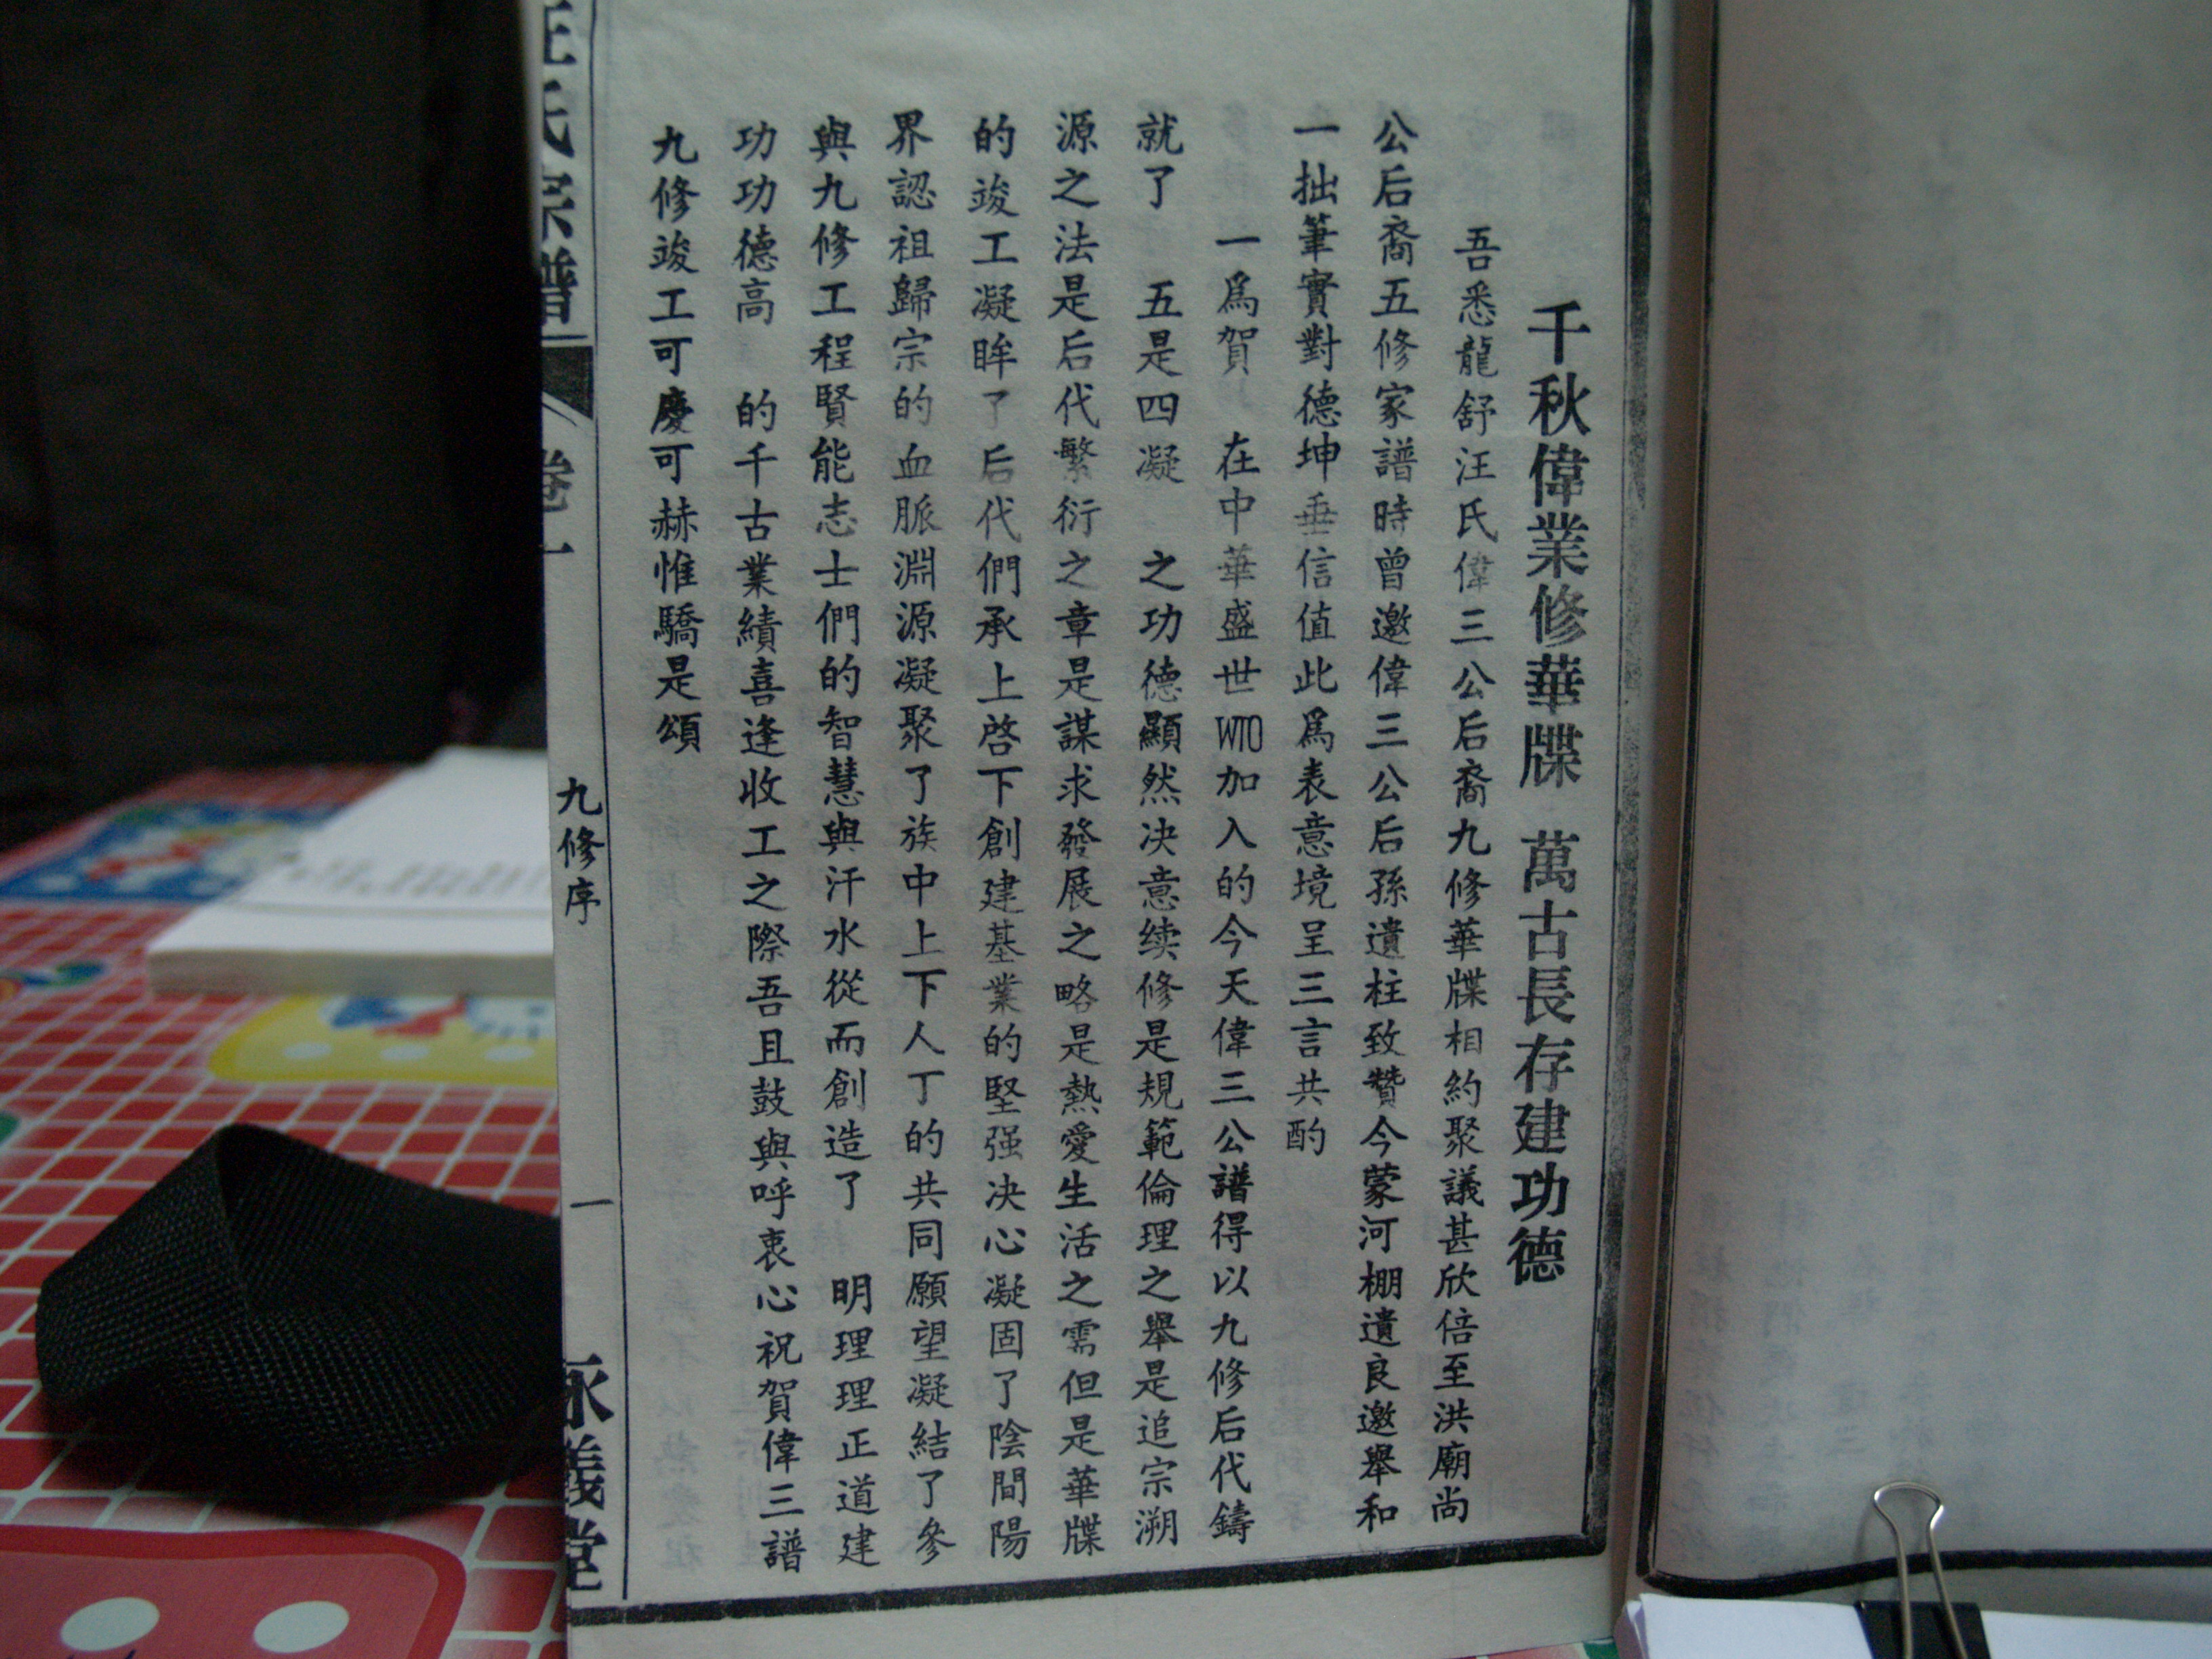 千秋偉業修華牒 萬古長存建功德
吾悉龍舒汪氏偉三公后裔九修華牒相約聚議甚欣倍至洪廟尚
公后裔五修家譜時曾邀偉三公后孫遺柱致贊今蒙河棚遺良邀舉和
一拙筆實對德坤垂信值此爲表意境呈三言共酌
一爲賀 在中華盛世WTO加入的今天偉三公譜得以九修后代鑄
就了 五是四凝 之功德顯然决意续修是規範倫理之舉是追宗溯
源之法是后代繁衍之章是謀求發展之略是熱愛生活之需但是華牒
的竣工凝眸了后代們承上啓下創建基業的堅强决心凝固了陰間陽
界認祖歸宗的血脈淵源凝聚了族中上下人丁的共同願望凝結了參
與九修工程賢能志士們的智慧與汗水從而創造了 明理理正道建
功功德高 的千古業績喜逢收工之際吾且鼓與呼衷心祝賀偉三譜
九修竣工可慶可赫惟驕是頌
汪氏宗譜 卷一 九修序 一 永義堂